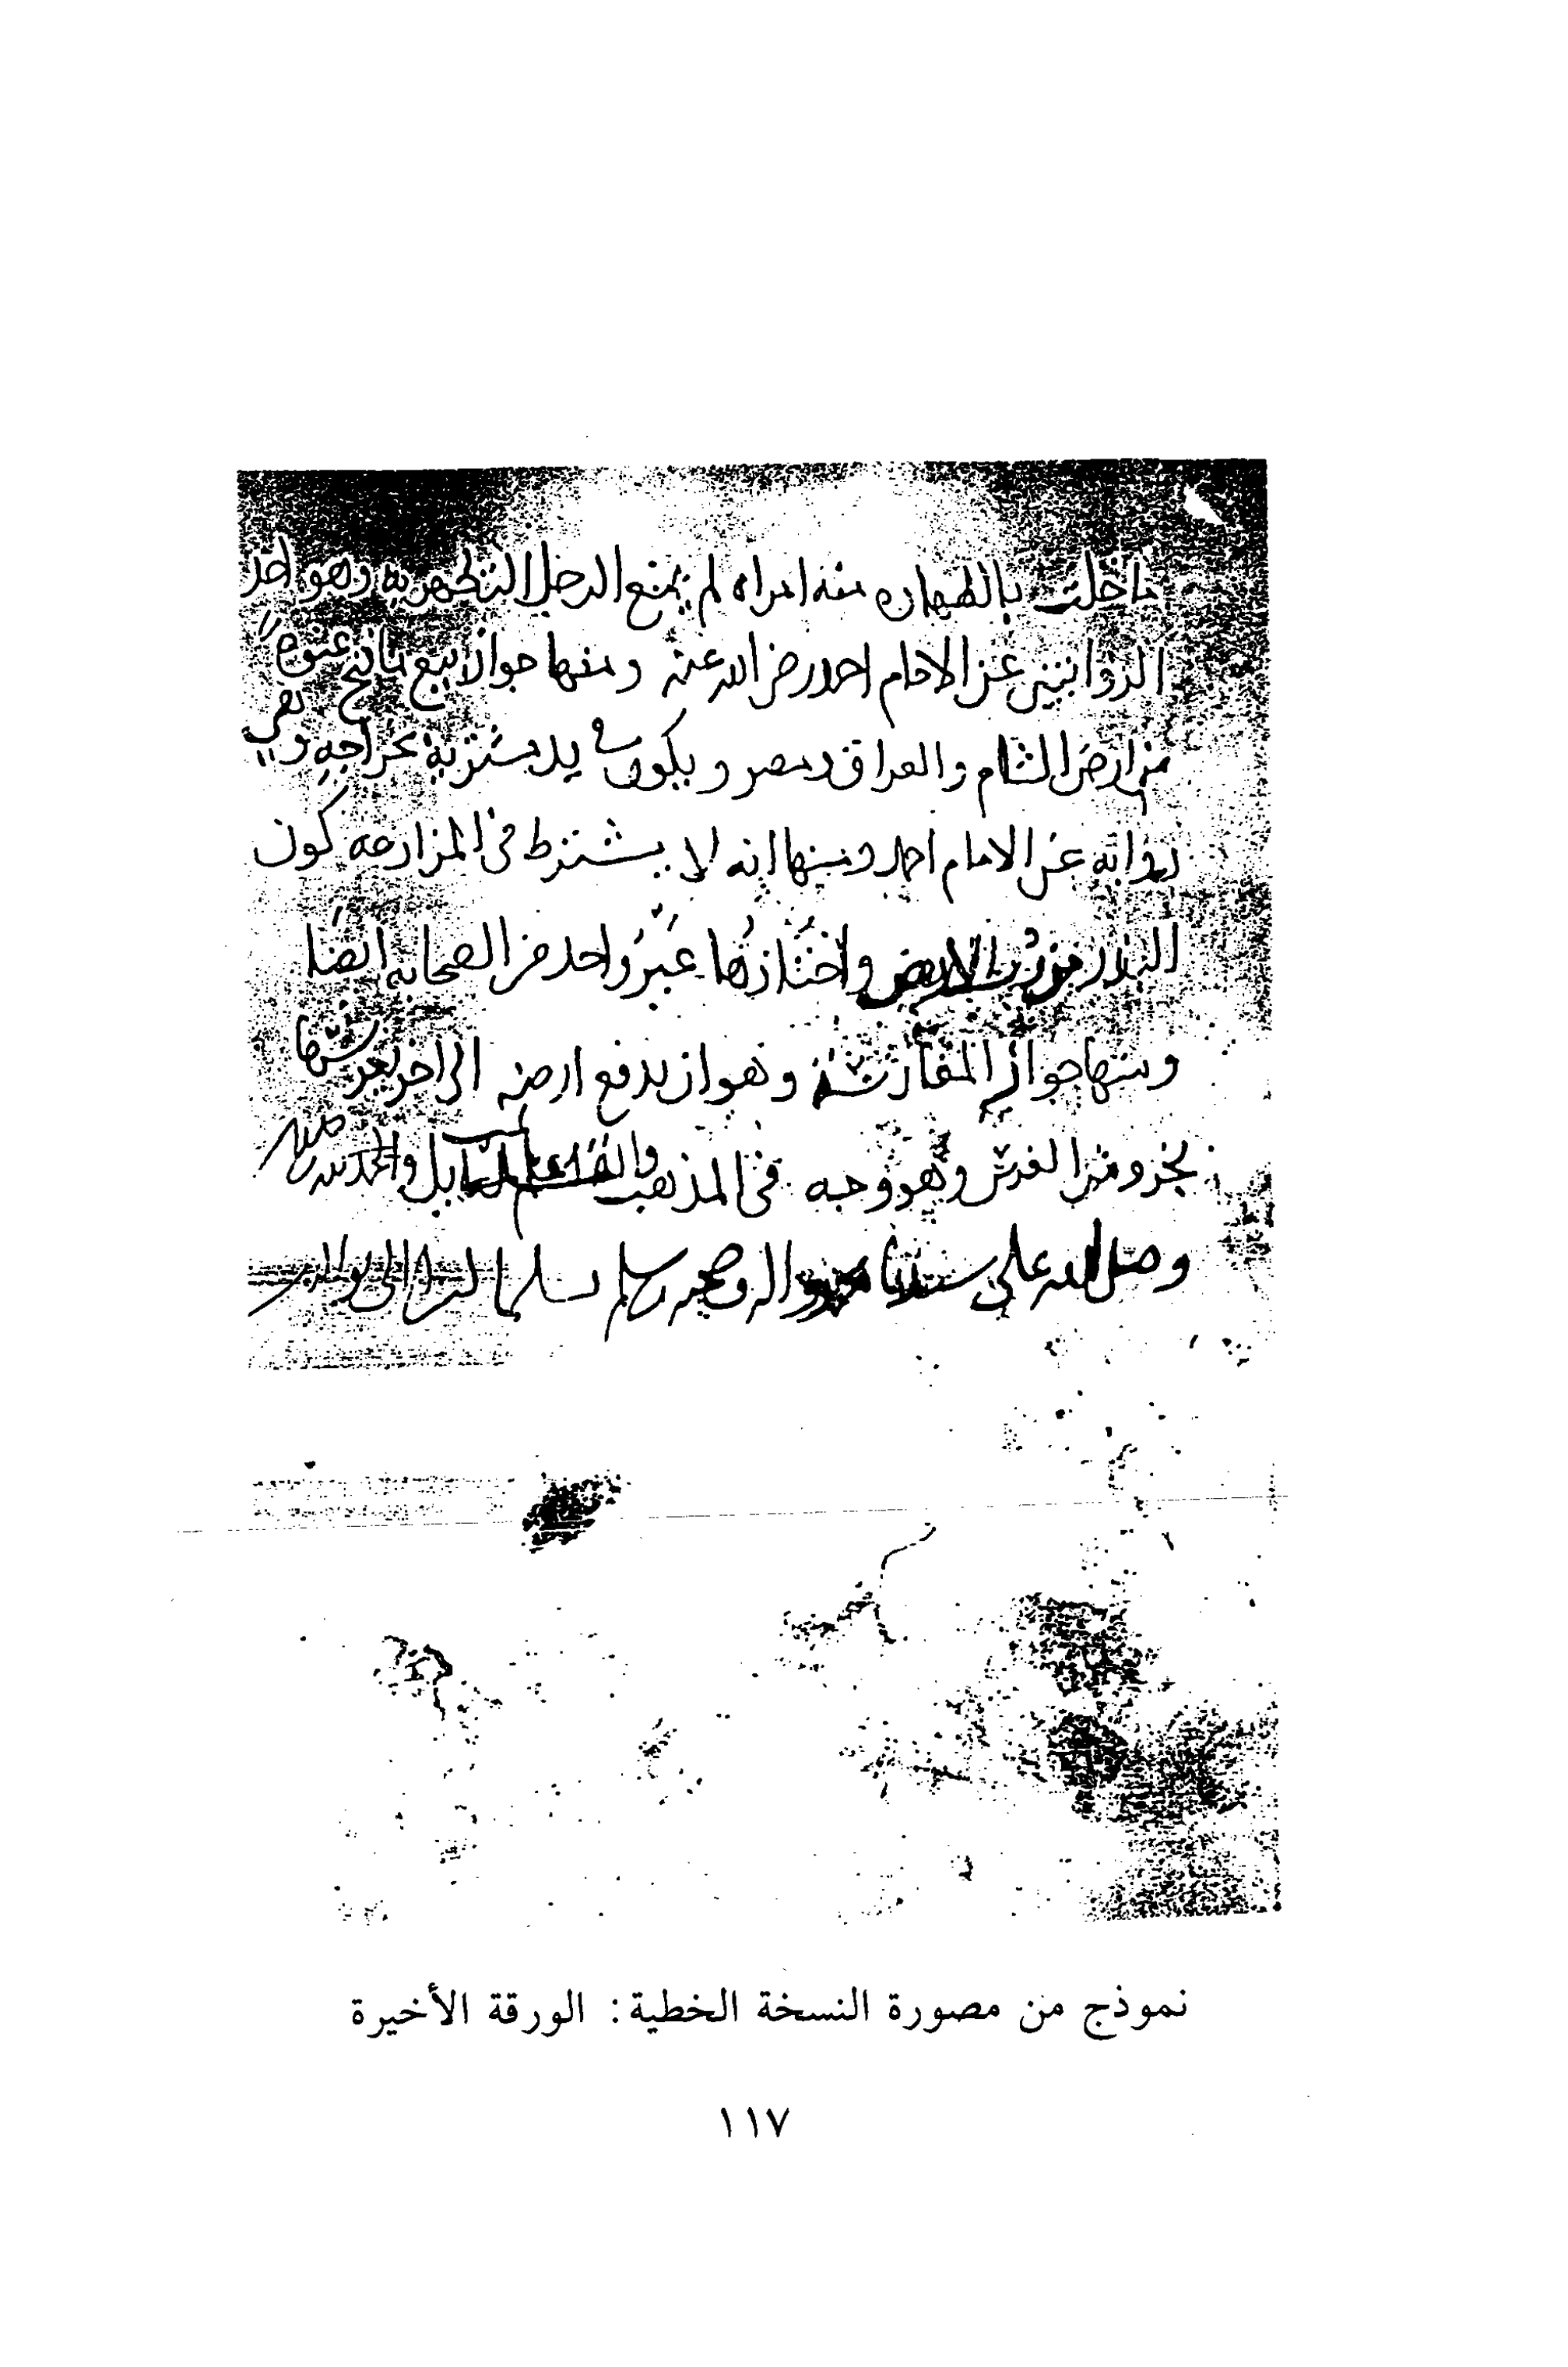 ما خلت بالطهاره منه امراه لم يمنع الرجل التطهر به وهو احد
الروايتين عن الامام احمد رضي الله عنه ومنها جواز بيع ما فتح عنوة
من ارض الشام والعراق ومصر ويكون في يد مشتريه بخراجه وهي
روايه عن الامام احمد ومنها انه لا يشترط في المزارعه كون
البذر من رب الارض واختارها غير واحد من الصحابه ايضا
ومنها جواز المغارسة وهو ان يدفع ارضه الى اخر يغرسها
بجزو من الغرس وهو وجه في المذهب والله اعلم والحمد لله
وصلى الله على سيدنا محمد واله وصحبه وسلم تسليما كثيرا الى يوم الدين
نموذج من مصورة النسخة الخطية: الورقة الأخيرة
١١٧